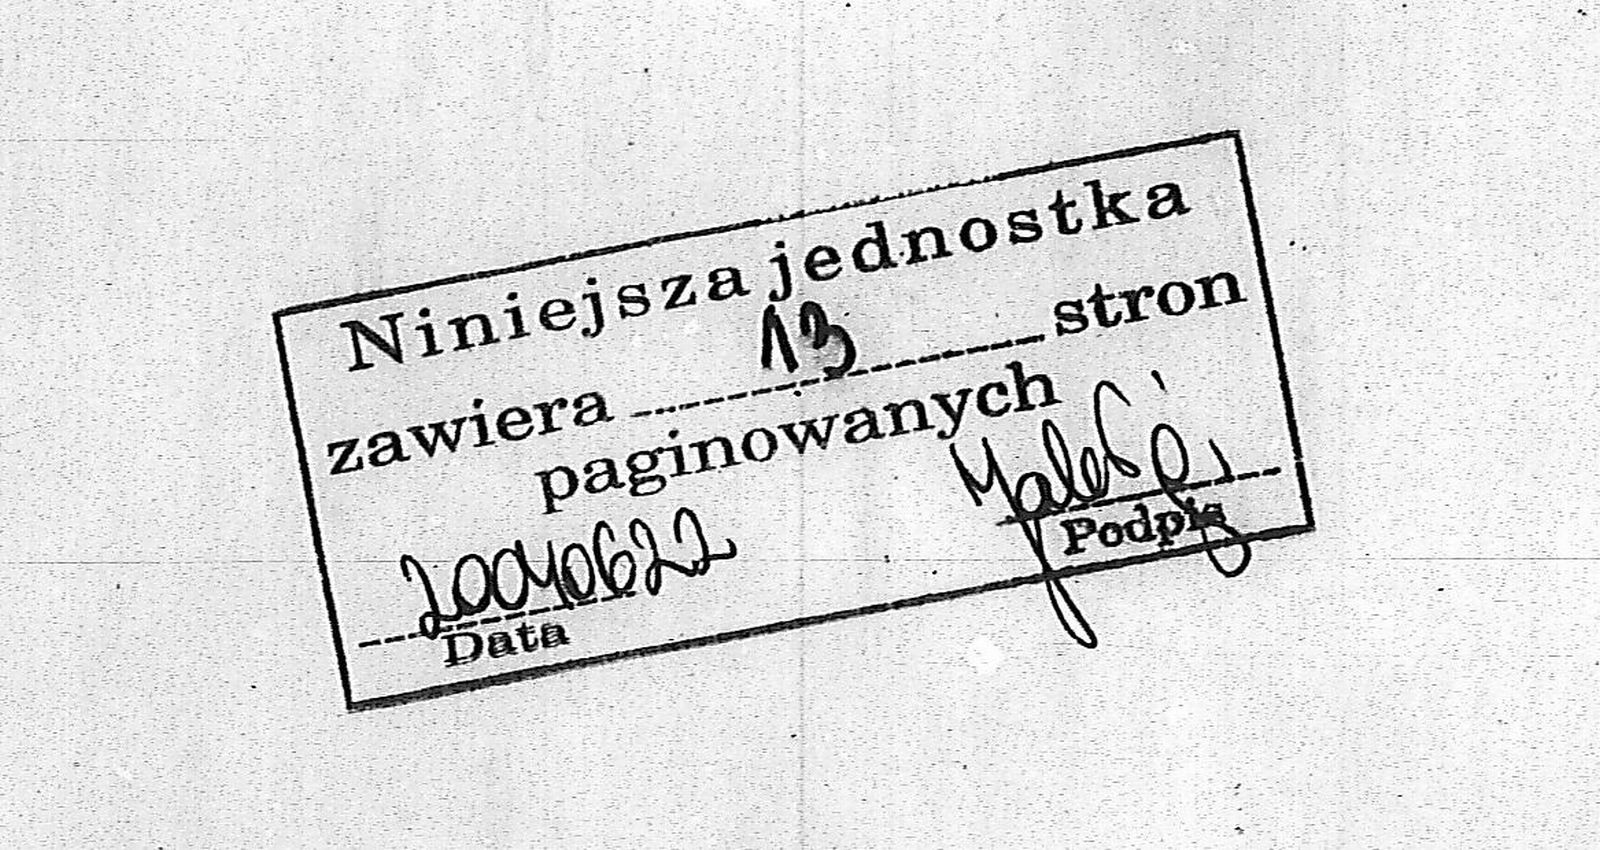 Niniejsza jednostka
zawiera 13 stron
paginowanych
20040622
Data Podpis